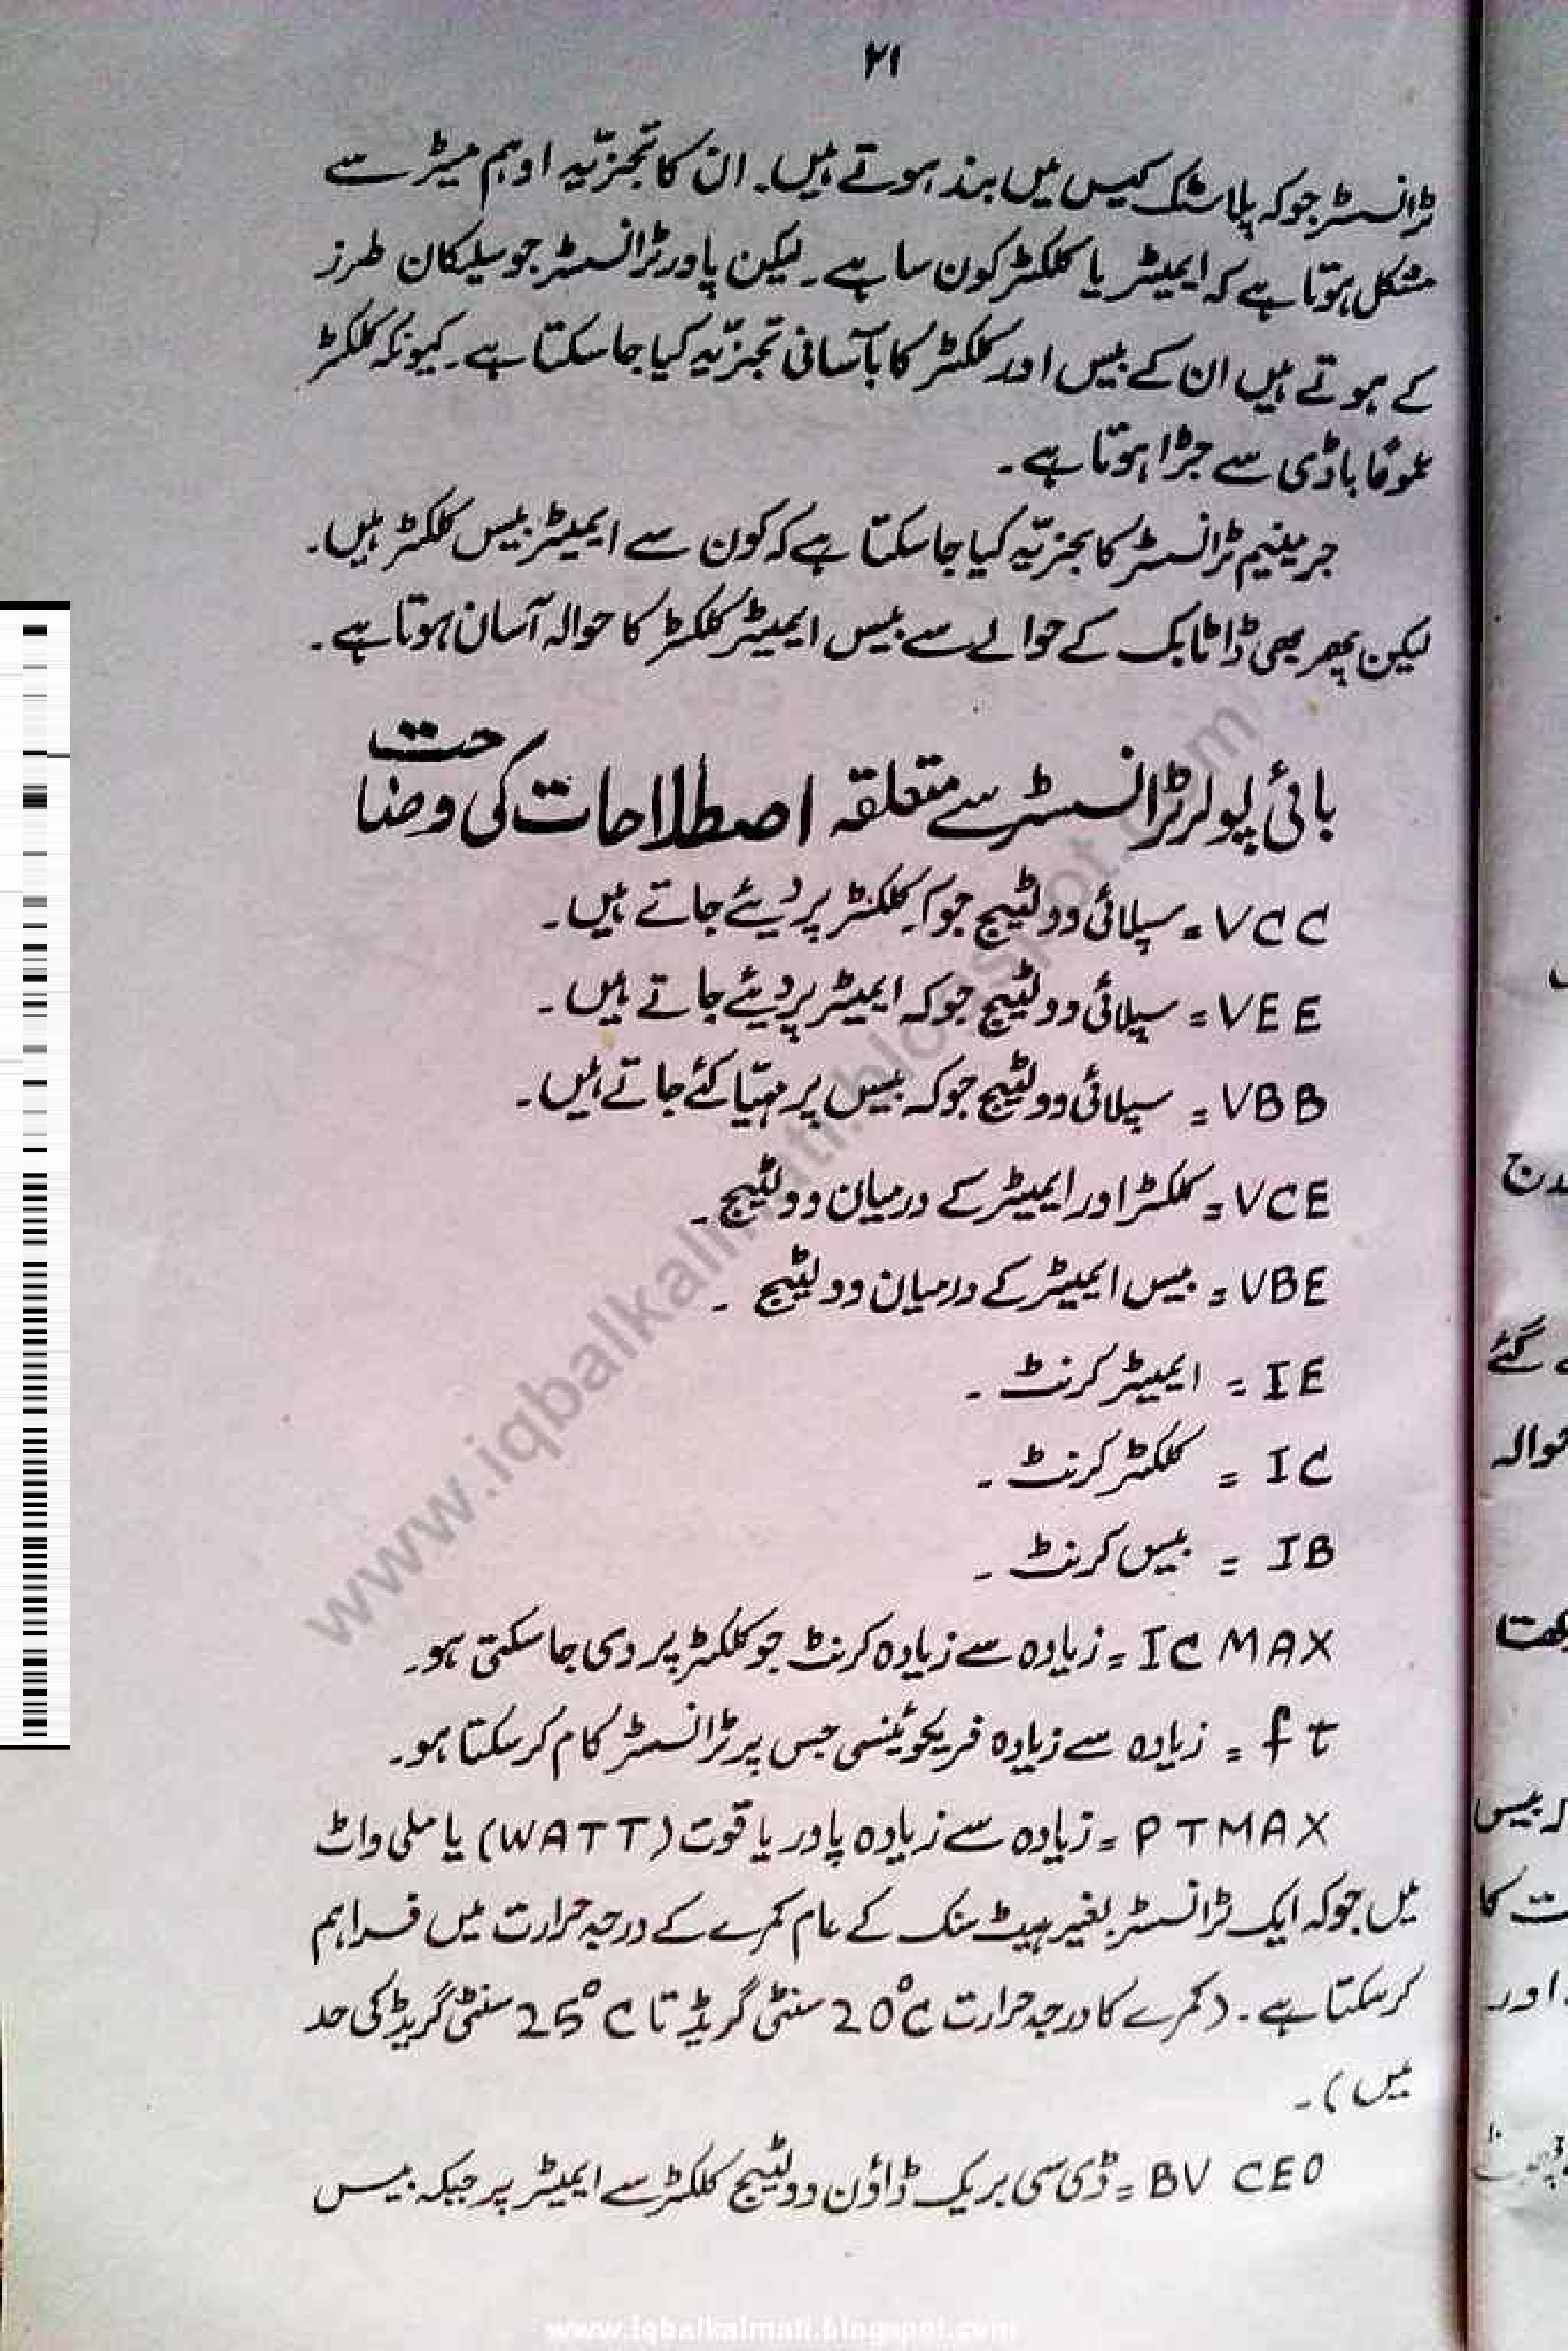 ۲۱
ٹرانسسٹر جو کہ پلاسٹک کیس میں بند ہوتے ہیں۔ ان کا تجزّیہ اوہم میٹر سے
مشکل ہوتا ہے کہ ایمیٹر یا کلکٹر کون سا ہے۔ لیکن پاور ٹرانسسٹر جو سیلیکان طرز
کے ہوتے ہیں ان کے بیس اور کلکٹر کا باآسانی تجزّیہ کیا جا سکتا ہے۔ کیونکہ کلکٹر
عموماً باڈی سے جڑا ہوتا ہے۔
جرمینیم ٹرانسسٹر کا تجزیّہ کیا جا سکتا ہے کہ کون سے ایمیٹر بیس کلکٹر ہیں۔
لیکن پھر بھی ڈاٹا بک کے حوالے سے بیس ایمیٹر کلکٹر کا حوالہ آسان ہوتا ہے۔
بائی پولر ٹرانسسٹر سے متعلقہ اصطلاحات کی وضاحت
VCC = سپلائی وولٹیج جو کہ کلکٹر پر دیئے جاتے ہیں۔
VEE = سپلائی وولٹیج جو کہ ایمیٹر پر دیئے جاتے ہیں۔
VBB = سپلائی وولٹیج جو کہ بیس پر مہیّا کئے جاتے ہیں۔
VCE = کلکٹر اور ایمیٹر کے درمیان وولٹیج۔
VBE = بیس ایمیٹر کے درمیان وولٹیج ۔
IE = ایمیٹر کرنٹ ۔
IC = کلکٹر کرنٹ ۔
IB = بیس کرنٹ ۔
IC MAX = زیادہ سے زیادہ کرنٹ جو کلکٹر پر دی جا سکتی ہو۔
ft = زیادہ سے زیادہ فریکوئینسی جس پر ٹرانسسٹر کام کر سکتا ہو۔
PTMAX = زیادہ سے زیادہ پاور یا قوت (WATT) یا ملی واٹ
میں جو کہ ایک ٹرانسسٹر بغیر ہیٹ سنک کے عام کمرے کے درجہ حرارت میں فراہم
کر سکتا ہے۔ (کمرے کا درجہ حرارت 20°C سنٹی گریڈ تا 25°C سنٹی گریڈ کی حد
میں)۔
BV CEO = ڈی سی بریک ڈاؤن وولٹیج کلکٹر سے ایمیٹر پر جبکہ بیس
www.iqbalkalmati.blogspot.com
www.iqbalkalmati.blogspot.com
گئے
حوالہ
بیس
کا
اور